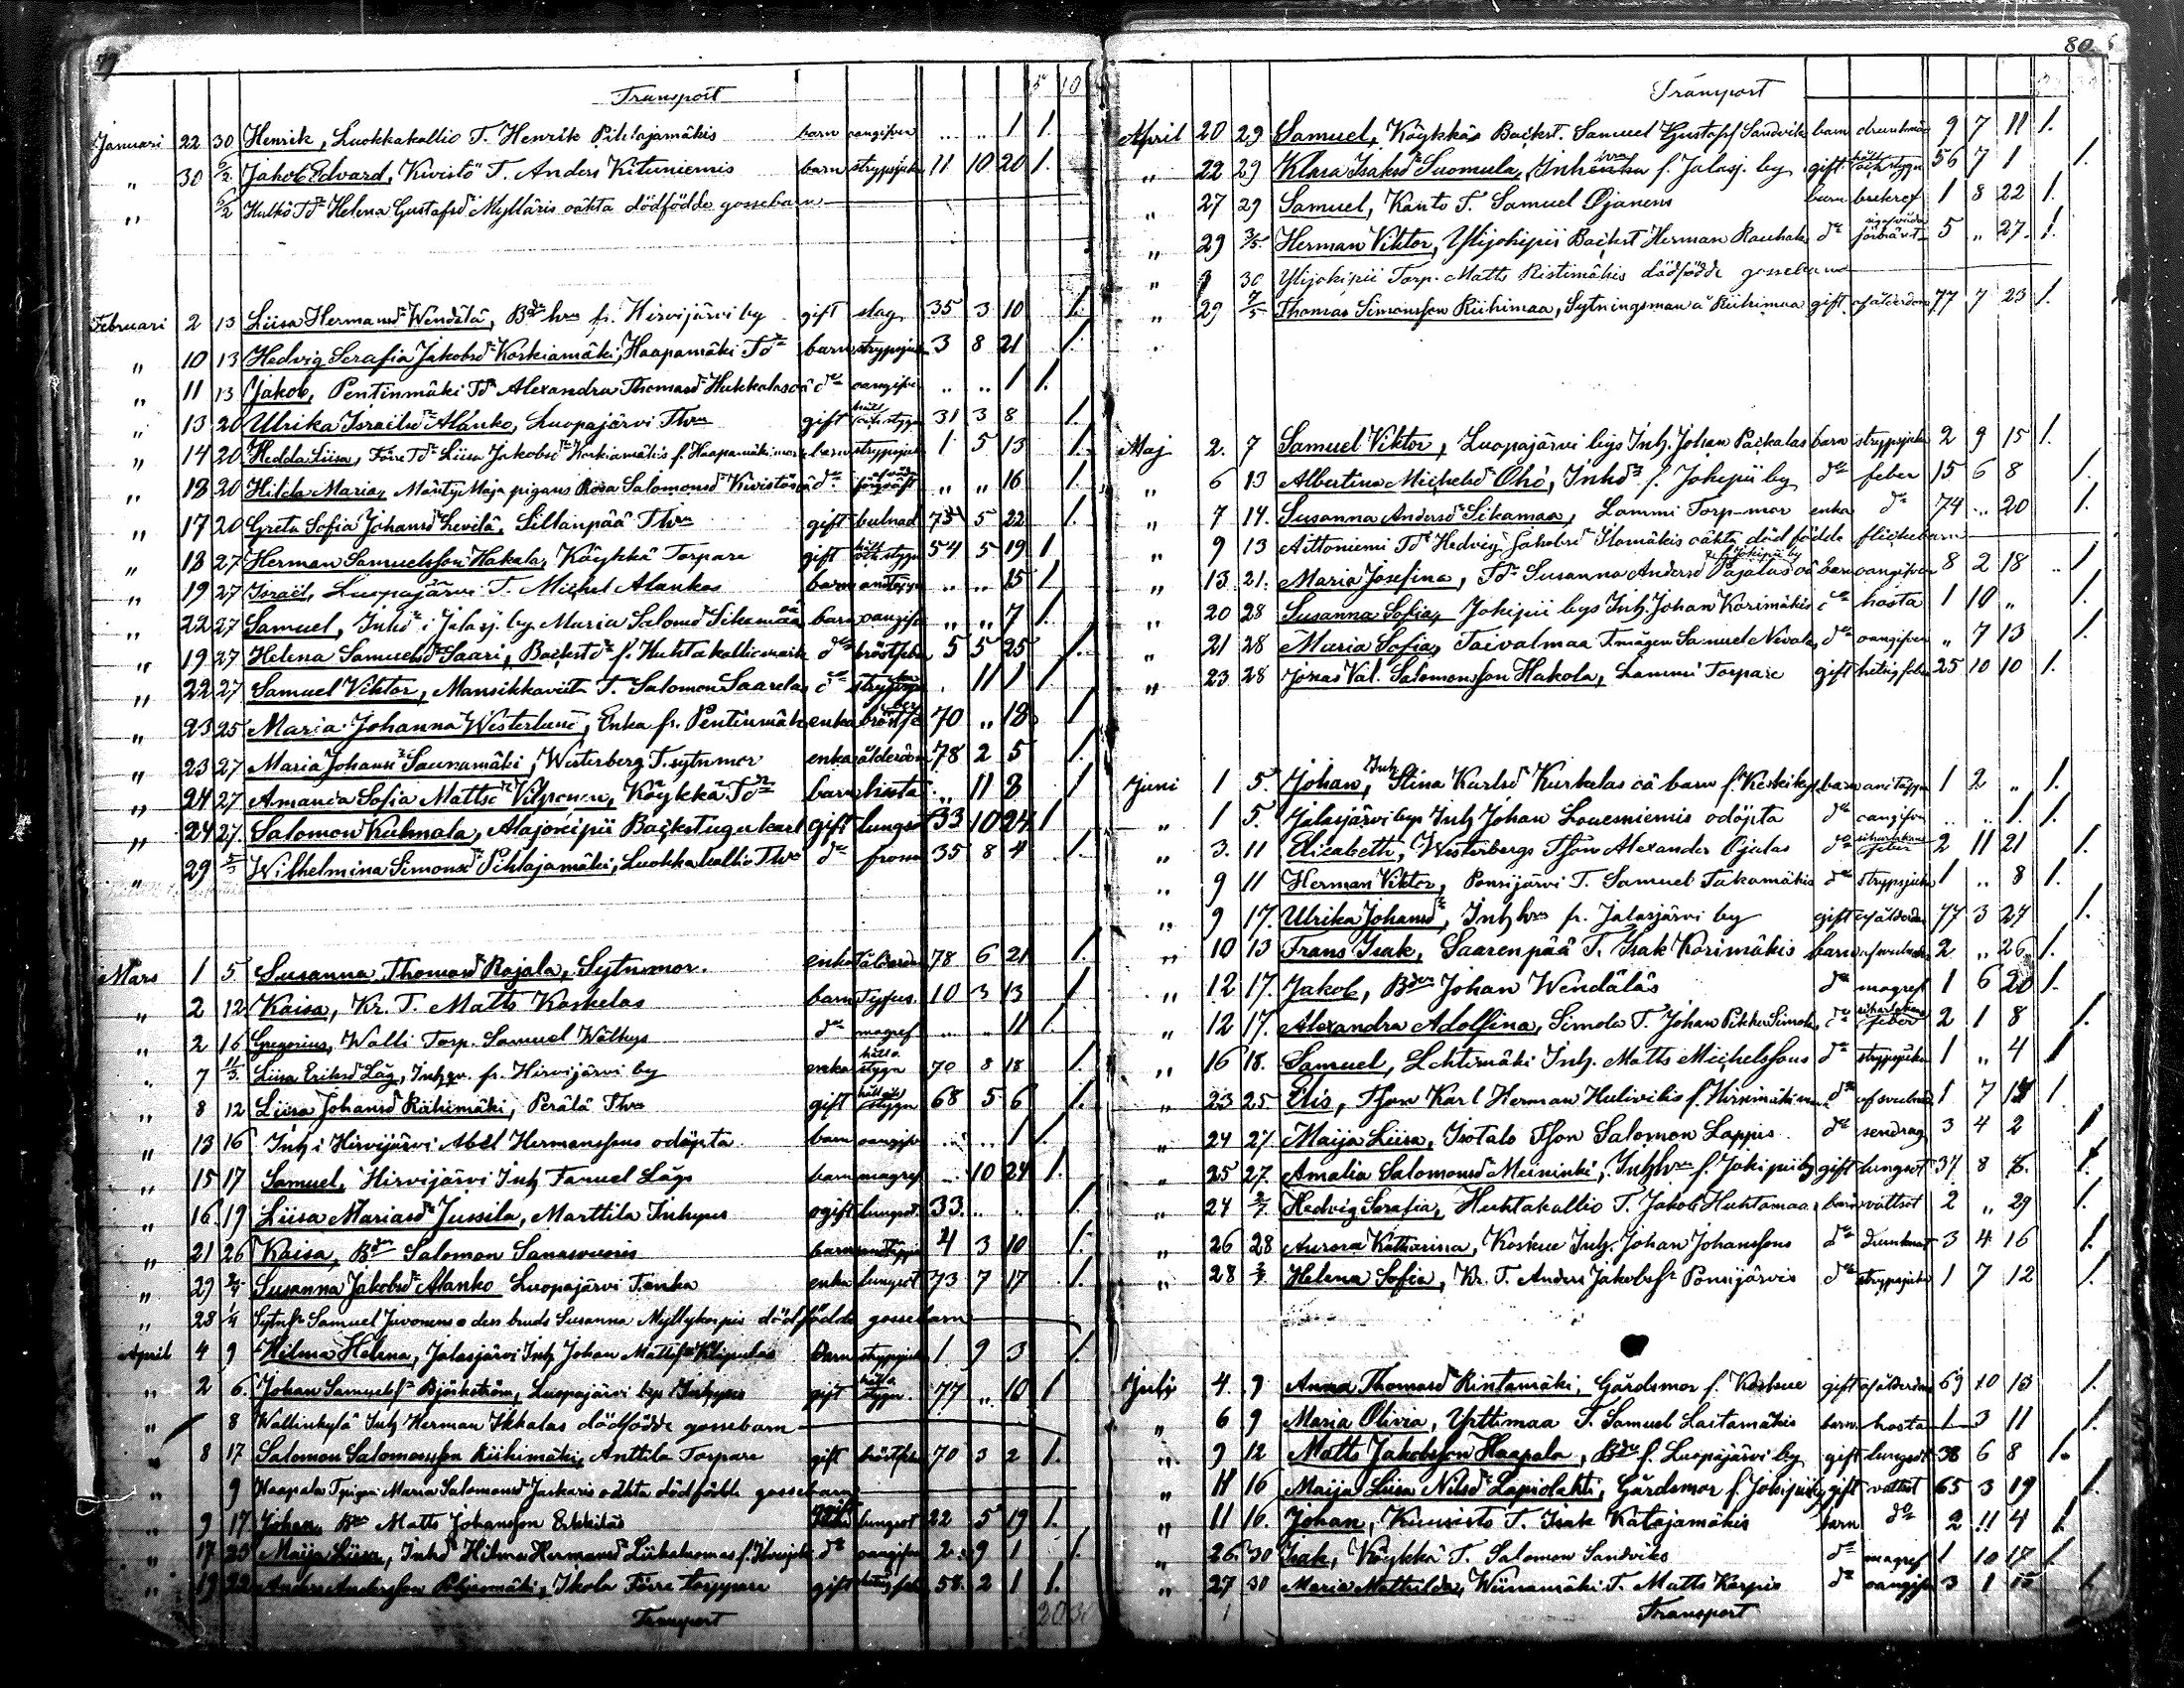 79
Transport 5 10
Januari 22 30 Henrik, Luokkakallio T. Henrik Pihlajamäkis barn oangifven .. .. 1 1.
" 30 6/2 Jakob Edvard, Kivistö T. Anders Kituniemis barn strypsjuka 11 10 20 1.
" 6/2 Hulkö Td Helena Gustafsd Myllaris oäkta dödfödde gossebarn
Februari 2 13 Liisa Hermansd Wendelä, Bde hru fr. Hirvijärvi by gift slag 35 3 10 1.
" 10 13 Hedvig Serafia Jakobsd Koskiamäki, Haapamäki Td barn strypsjuka 3 8 21 1.
" 11 13 Jakob, Pentinmäki Td Alexandra Thomasd Hukkalas oä do oangifven .. .. 1 1.
" 13 20 Ulrika Israelsd Alanko, Luopajärvi Thru gift håll och stygn 31 3 8 1.
" 14 20 Hedda Liisa, Förre Td Liisa Jakobsd Koskiamäkis f. Haapamäki barn strypsjuka 1 5 13 1.
" 18 20 Hilda Maria, Mäntyj Maja pigans Rosa Salomonsd Kivistös oä do " " 16 1.
" 17 20 Greta Sofia Johansd Levilä, Sillanpää Thru gift bulnad 75 5 22 1.
" 18 27 Herman Samuelsson Hakala, Köykkä Torpare gift håll och stygn 54 5 19 1
" 19 27 Israël, Luopajärvi T. Michel Alankos barn andtäppa .. .. 15 1
" 22 27 Samuel, Inhd i Jalasj. by Maria Salomd Sikamaa oä barn oangifv " " 7 1.
" 19 27 Helena Samuelsd Saari, Backst d f. Huhtakallio do bröstfeber 5 5 25 1.
" 22 27 Samuel Viktor, Mansikkaviita T. Salomon Saarelas do strypsjuka . 11 1 1
" 23 25 Maria Johanna Westerlund, Enka fr. Pentinmäki enka bröstfeber 70 " 18 1
" 23 27 Maria Johansd Saunamäki, Westerberg T. sytnmor enka ålderdom 78 2 5 1.
" 24 27 Amanda Sofia Mattsd Vilponen, Köykkä Td barn hosta .. 11 8 1
" 24 27. Salomon Kulmala, Alajokipii Backstugukarl gift lungsot 33 10 24 1
" 29 5/3 Wilhelmina Simonsd Pihlajamäki, Luokkakallio Thru do frossa 35 8 4 1.
Mars 1 5 Susanna Thomasd Rajala, Sytnmor. enka ålderdom 78 6 21 1.
" 2 12 Kaisa, Kr. T. Matts Koskelas barn Tyfus. 10 3 13 1.
" 2 16 Gregorius, Walli Torp. Samuel Wälkys do magref .. .. 11 1.
" 7 11/3 Liisa Eriksd Låg, Inh. fr. Hirvijärvi by enka håll o. stygn 70 8 18 1.
" 8 12 Liisa Johansd Riihimäki, Perälä Thru gift håll och stygn 68 5 6 1.
" 13 16 Inh i Hirvijärvi Abel Hermanssons odöpta barn oangifv .. .. 1 1.
" 15 17 Samuel, Hirvijärvi Inh Fanuel Lågs barn magref .. 10 24 1.
" 16 19 Liisa Mariasd Jussila, Marttila Inhyses ogift lungsot 33. .. .. 1.
" 21 26 Kaisa, Bdn Salomon Sanasvuoris barn andtäppa 4 3 10 1.
" 29 2/4 Susanna Jakobsd Alanko Luopajärvi T. enka enka lungsot 73 7 17 1.
" 28 1/4 Sytn Samuel Juvonens o dess bruds Susanna Myllykorpis dödfödde gossebarn
April 4 9 Hilma Helena, Jalasjärvi Inh Johan Mattss Kliipulas barn strypsjuka 1. 9 3 1.
" 2 6. Johan Samuels Björkström, Luopajärvi bys Inhyses gift håll o. stygn 77 " 10 1
" 8 Wallinkylä Inh Herman Ikkalas dödfödde gossebarn
" 8 17 Salomon Salomonsson Riihimäki, Anttila Torpare gift bröstfeber 70 3 2 1.
" 9 Haapala T. pigan Maria Salomonsd Jaskaris oäkta dödfödde gossebarn
" 9 17 Johan, Bdn Matts Johansson Erkkiläs ogift lungsot 22 5 19 1.
" 17 23 Maija Liisa, Inhd Hilma Hermansd Liikaluomas f. Hirvijrvi do oangifven 2. 9 1 1.
" 19 22 Anders Andersson Pohjasmäki, Ikola Förre torppare gift hetsig feb 58. 2 1 1.
Transport 20 30
80
Transport
April 20 29 Samuel, Köykkäs Backst. Samuel Gustafs Sandvik barn drunknad 9 7 11 1.
" 22 29 Klara Isaksd Suomula, Inh f. Jalasj. by gift håll och stygn 56 7 1 1.
" 27 29 Samuel, Kanto T. Samuel Ojanens barn bukref 1 8 22 1.
" 29 3/5 Herman Viktor, Ylijokipii Backst Herman Rauhala do 5 " 27. 1.
" 9 30 Ylijokipii Torp. Matts Ristimäkis dödfödde gossebarn
" 29 7/5 Thomas Simonsson Riihimaa, Sytningsman å Riihimaa gift af ålderdom 77 7 23 1.
Maj 2. 7 Samuel Viktor, Luopajärvi bys Inh. Johan Paikalas barn strypsjuka 2 9 15 1.
" 6 13 Albertina Michelsd Ohö, Inhd f. Jokipii by do feber 15 6 8 1.
" 7 14. Susanna Andersd Sikamaa, Lammi Torp-mor enka do 74 .. 20 1.
" 9 13 Aittoniemi Td Hedvig Jakobsd Ilomäkis oäkta död födde flickebarn
" 13 21. Maria Josefina, Td Susanna Andersd Pajalas oä f. Jokipii by barn oangifven 8 2 18 1
" 20 28 Susanna Sofia, Jokipii bys Inh. Johan Korimäkis do hosta 1 10 " 1.
" 21 28 Maria Sofia, Taivalmaa T. mågen Samuel Nevala do oangifven " 7 13 1.
" 23 28 Jonas Val. Salomonsson Hakola, Lammi Torpare gift hetsig feber 25 10 10 1.
Juni 1 5. Johan, Inh Stina Karlsd Kurkelas oä barn f. Keskikyl barn andtäppa 1 2 " 1.
" 1 5. Jalasjärvi bys Inh Johan Louesniemis odöpta do oangifven .. .. 1. 1.
" 3. 11 Elisabeth, Westerbergs Tson Alexander Ojalas do scharlakans feber 2 11 21 1.
" 9 11 Herman Viktor, Ponsijärvi T. Samuel Takamäkis do strypsjuka 1 .. 8 1.
" 9 17. Ulrika Johansd, Inh hru fr. Jalasjärvi by gift af ålderdom 77 3 27 1.
" 10 13 Frans Isak, Saarenpää T. Isak Korimäkis barn 2 .. 26 1.
" 12 17. Jakob, Bden Johan Wendäläs do magref 1 6 20 1.
" 12 17. Alexandra Adolfina, Simola T. Johan Pitkä Simola do scharlakans feber 2 1 8 1.
" 16 18. Samuel, Lehtimäki Inh. Matts Michelssons do strypsjuka 1 " 4 1
" 23 25 Elis, Tson Karl Herman Hulivilis f. Hirvimäki do af svulnad 1 7 1
" 24 27 Maija Liisa, Isotalo Tson Salomon Lappis do sendrag 3 4 2 1
" 25 27. Amalia Salomonsd Meininki, Inh hru f. Jokipii by gift lungsot 37 8 1.
" 24 2/7 Hedvig Serafia, Huhtakallio T. Jakob Huhtamaa barn vattsot 2 " 29 1.
" 26 28 Aurora Katharina, Koskue Inh. Johan Johanssons do drunknat 3 4 16 1.
" 28 2/7 Helena Sofia, Kr. T. Anders Jakobss Ponsijärvis do strypsjuka 1 7 12 1.
Juli 4. 9 Anna Thomasd Rintamäki, Gårdsmor f. Koskue gift af ålderdom 69 10 13 1.
" 6 9 Maria Olivia, Yrttimaa T. Samuel Laitamäkis barn hosta 1 3 11 1.
" 9 12 Matts Jakobsson Haapala, Bde f. Luopajärvi by gift lungsot 38 6 8 1.
" 11 16 Maija Liisa Nilsd Lapiolahti, Gårdsmor f. Jokipii by gift vattsot 65 3 19 1.
" 11 16. Johan, Kuusisto T. Isak Katajamäkis barn do 2 11 4 1.
" 26. 30 Isak, Köykkä T. Salomon Sandviks do magref 1 10 17 1.
" 27 30 Maria Mathilda, Wiinamäki T. Matts Korpis do oangifv 3 1 15 1.
Transport